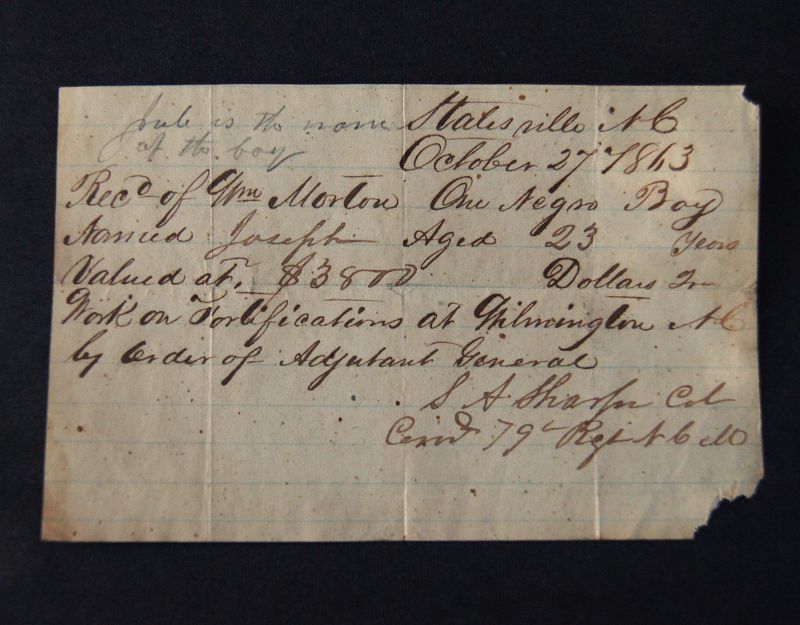 is the name
of the boy
Statesville N C
October 27 1863
Recd of Wm Morton One Negro Boy
Named Joseph Aged 23 Years
Valued at $3800 Dollars to
Work on Fortifications at Wilmington N C
by order of Adjutant General
S A Sharpe Col
Comd 79 Regt N C M